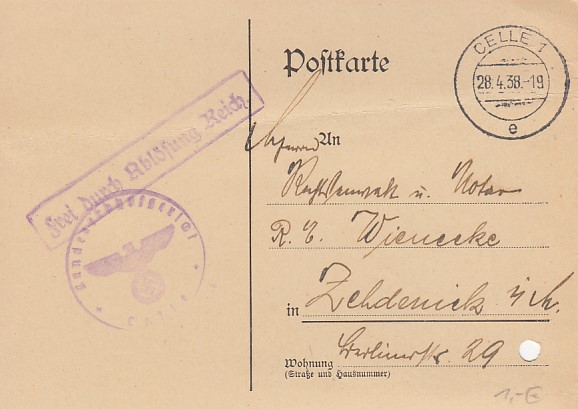 Postkarte
CELLE 1
28.4.38.-19
e
Frei durch Ablösung Reich
Landeserbhofgericht
* Celle *
An
Herrn
Rechtsanwalt u. Notar
R. E. Wienecke
in Zehdenick
Berlinerstr. 29
Wohnung
(Straße und Hausnummer)
1,-E